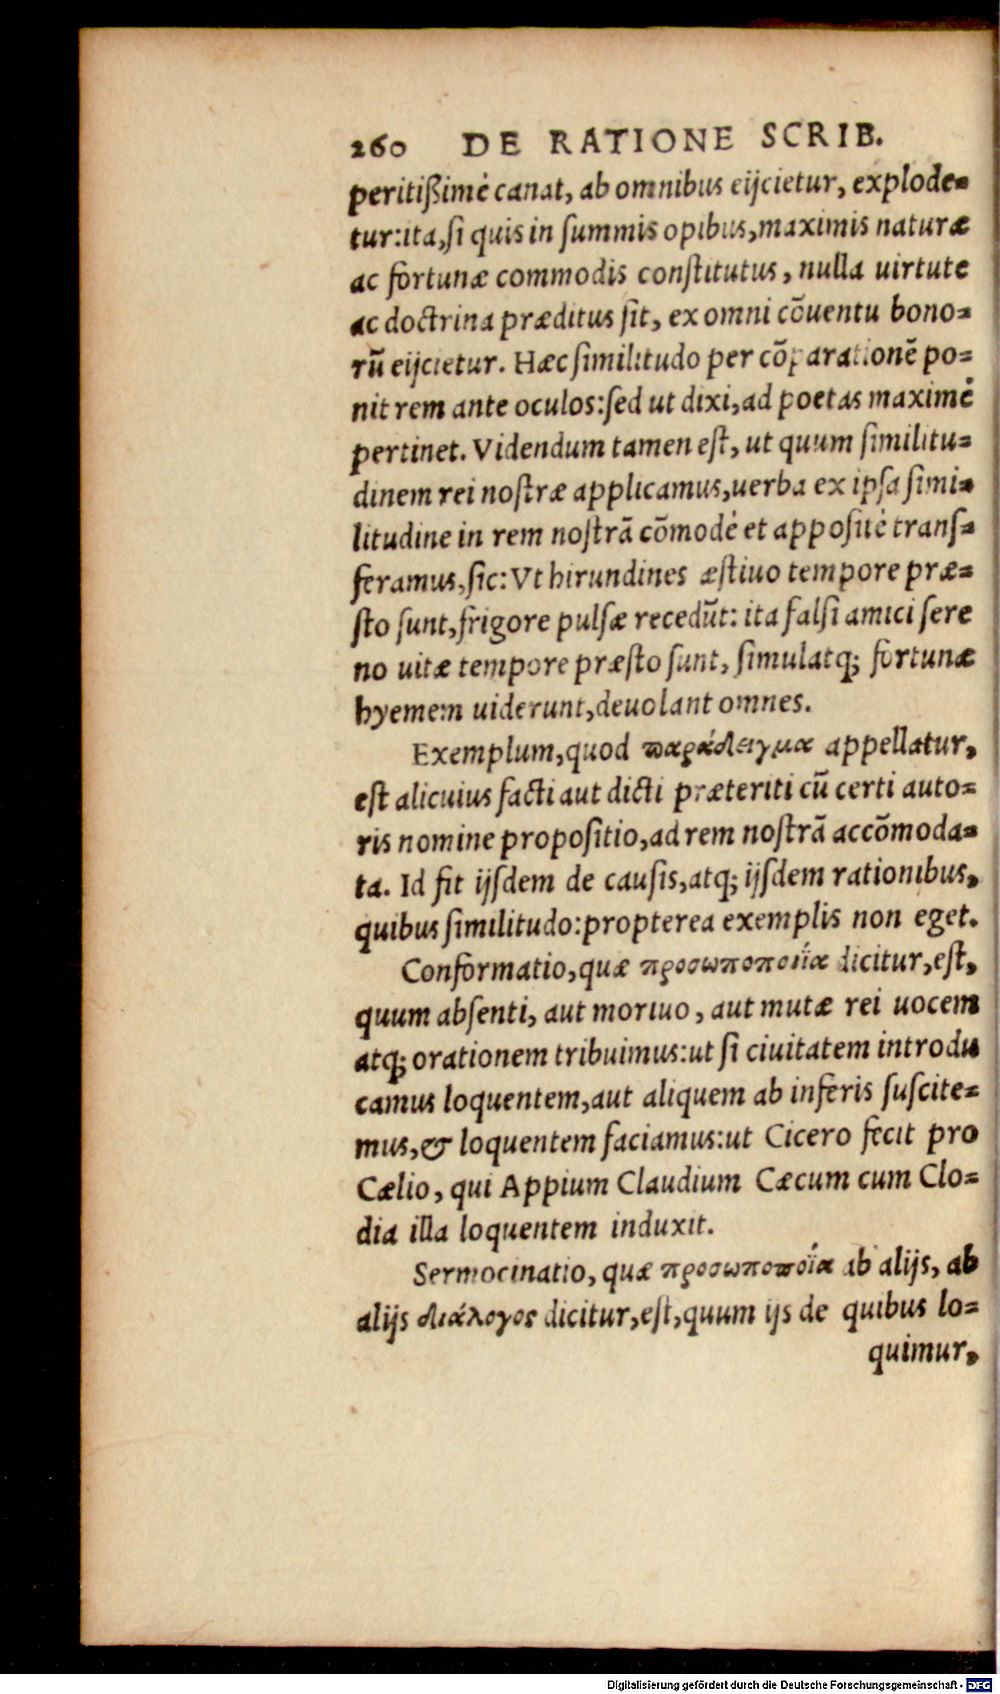 260 DE RATIONE SCRIB.
peritißimè canat, ab omnibus eijcietur, explode-
tur:ita,ſi quis in ſummis opibus,maximis naturæ
ac fortunæ commodis conſtitutus, nulla uirtute
ac doctrina præditus ſit, ex omni cōuentu bono-
rū eijcietur. Hæc ſimilitudo per cōparationē po-
nit rem ante oculos:ſed ut dixi,ad poetas maximè
pertinet. Videndum tamen eſt, ut quum ſimilitu-
dinem rei noſtræ applicamus,uerba ex ipſa ſimi-
litudine in rem noſtrā cōmodè et appoſitè tranſ-
feramus,ſic: Vt hirundines æſtiuo tempore præ-
ſto ſunt,frigore pulſæ recedūt: ita falſi amici ſere
no uitæ tempore præſto ſunt, ſimulatq; fortunæ
hyemem uiderunt,deuolant omnes.
Exemplum,quod παράδειγμα appellatur,
eſt alicuius facti aut dicti præteriti cū certi auto-
ris nomine propoſitio,ad rem noſtrā accōmoda-
ta. Id fit ijſdem de cauſis,atq; ijſdem rationibus,
quibus ſimilitudo:propterea exemplis non eget.
Conformatio,quæ προσωποποιΐα dicitur,eſt,
quum abſenti, aut mortuo, aut mutæ rei uocem
atq; orationem tribuimus:ut ſi ciuitatem introdu
camus loquentem,aut aliquem ab inferis ſuſcite-
mus,& loquentem faciamus:ut Cicero fecit pro
Cælio, qui Appium Claudium Cæcum cum Clo-
dia illa loquentem induxit.
Sermocinatio, quæ προσωποποΐα ab alijs, ab
alijs διάλογος dicitur,eſt,quum ijs de quibus lo-
quimur,
Digitalisierung gefördert durch die Deutsche Forschungsgemeinschaft - DFG